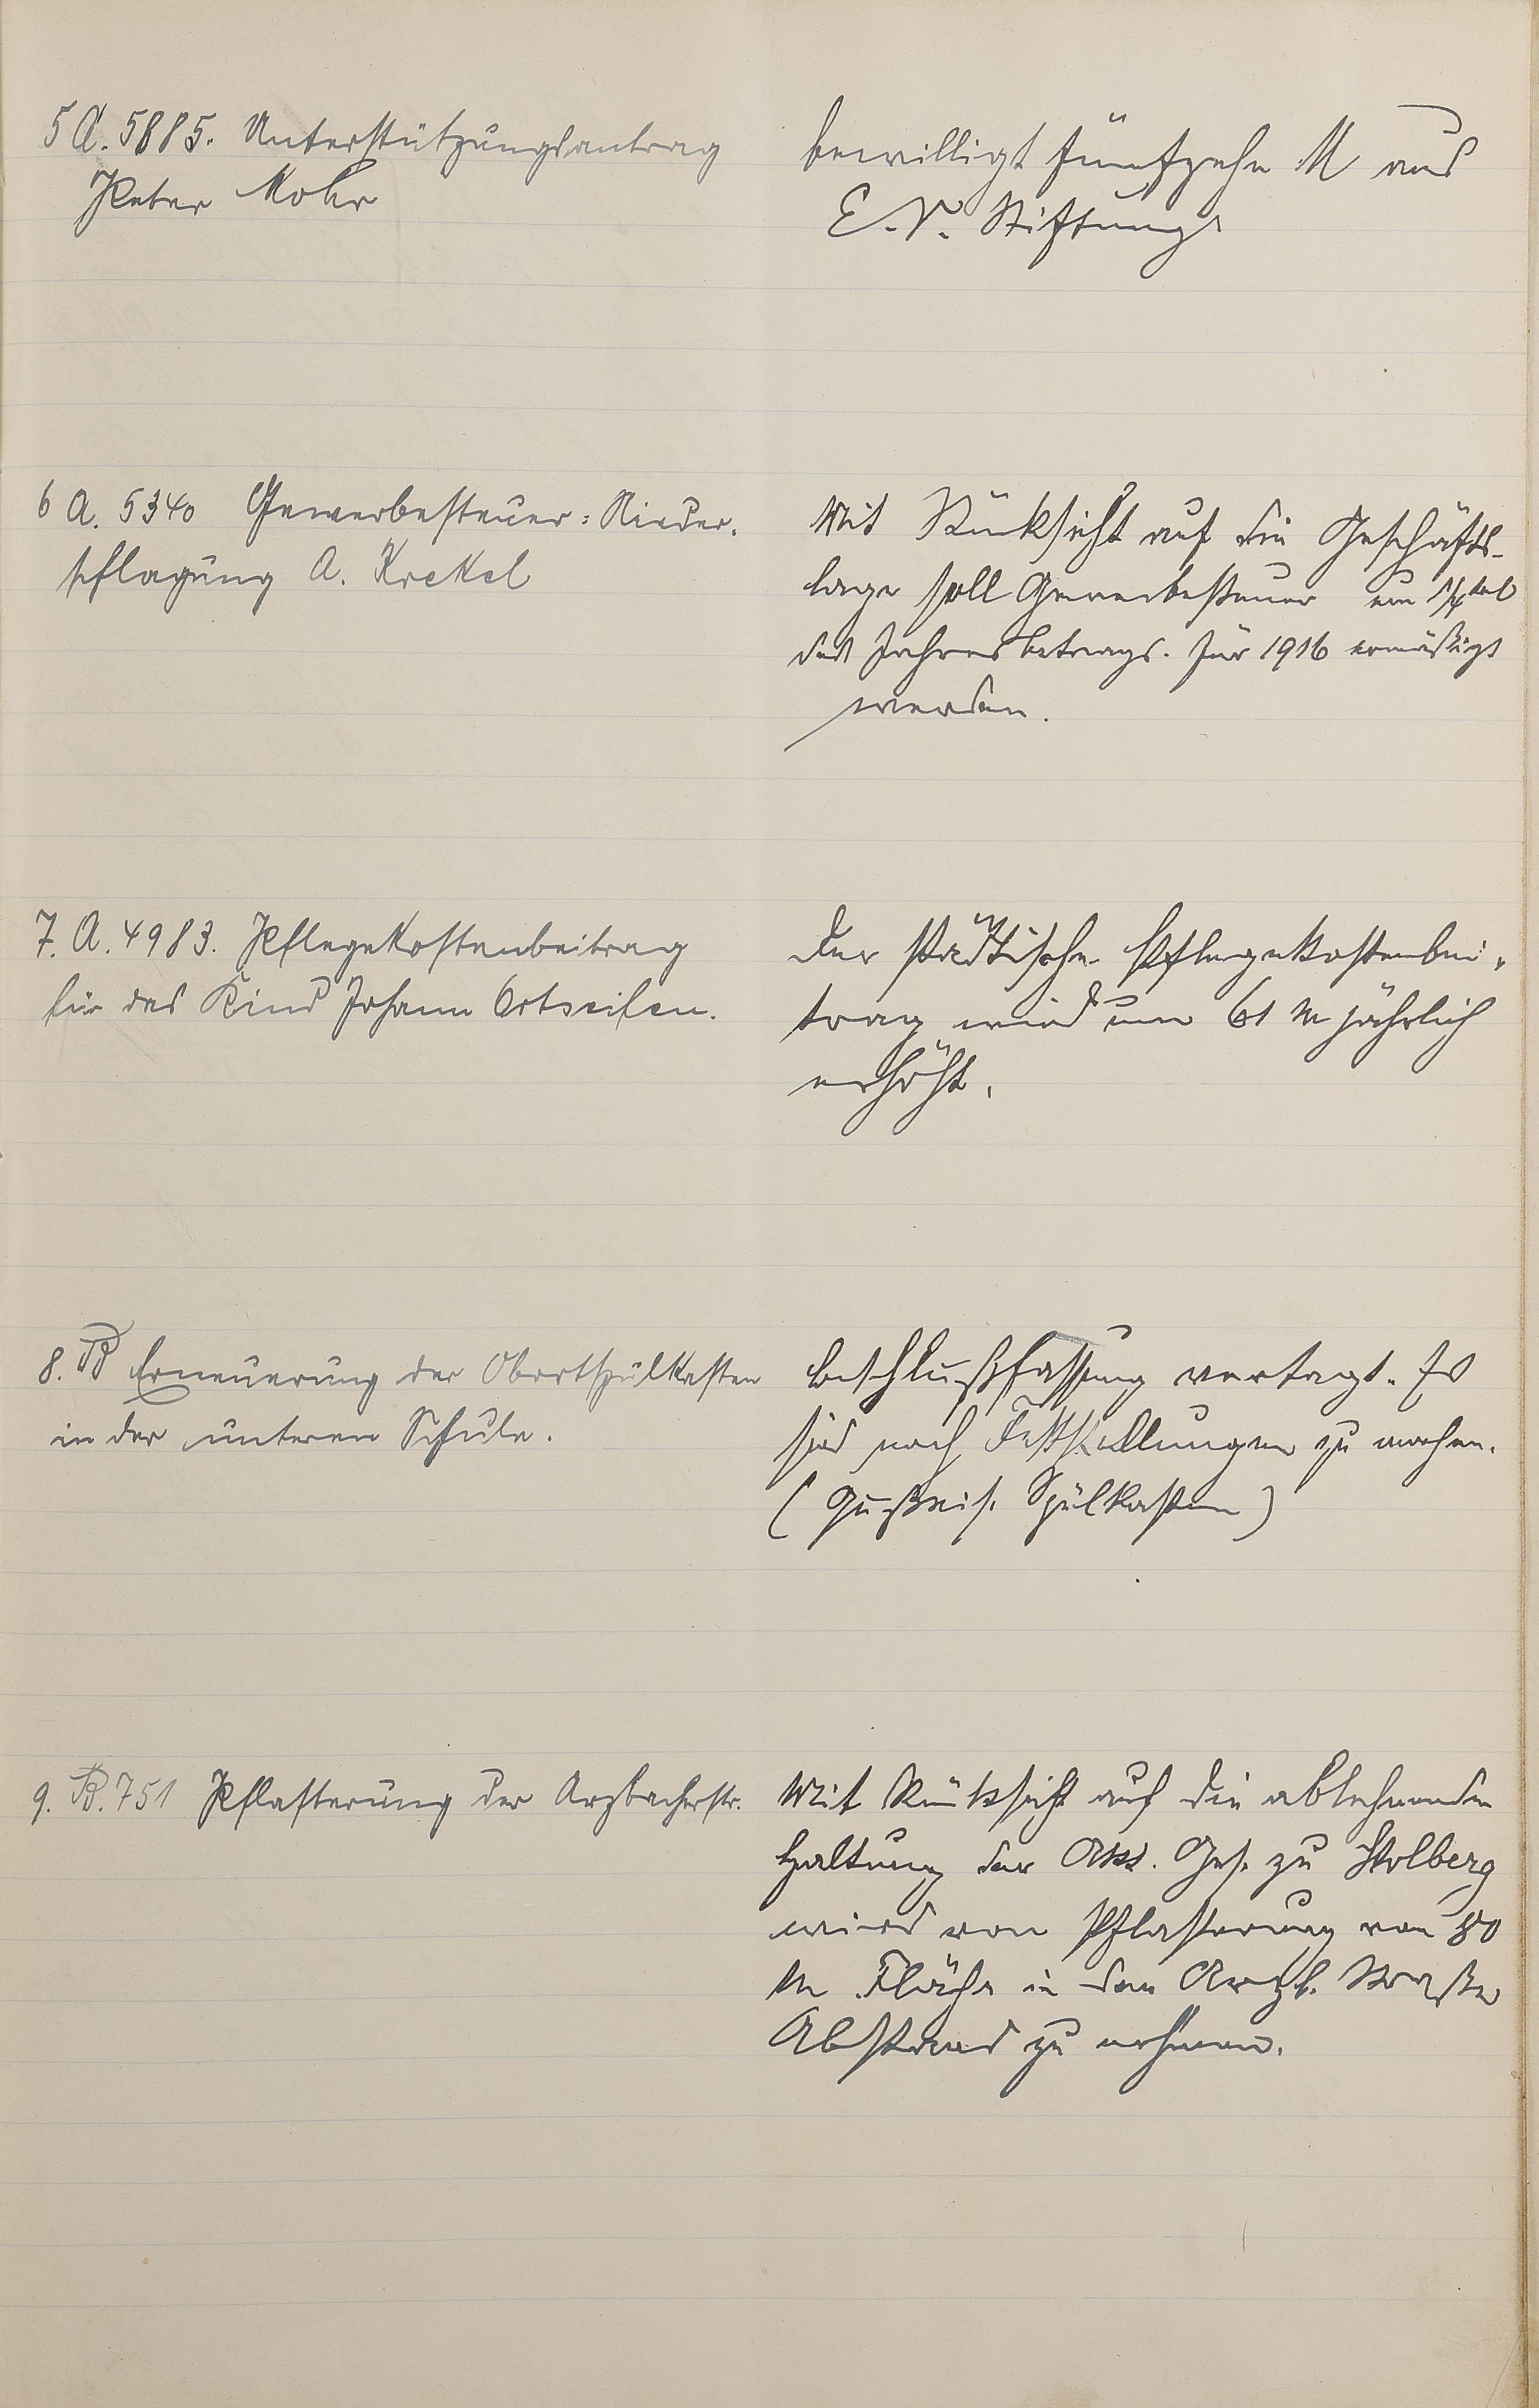 5 A. 5885. Unterstützungsantrag
Peter Mohr
bewilligt fünfzehn M aus
E.V. Stiftung
6 A. 5340 Gewerbesteuer-Nieder-
schlagung A. Krekel
Mit Rücksicht auf die Geschäfts-
lage soll Gewerbesteuer um 1/4tel
des Jahresbetrags. für 1916 ermäßigt
werden.
7. A. 4983. Pflegekostenbeitrag
für das Kind Johann Ortseifen.
Der städtische Pflegekostenbei-
trag wird um 61 M jährlich
erhöht.
8. B Erneuerung der Abortspülkasten
in der unteren Schule.
Beschlußfassung vertagt. Es
sind noch Feststellungen zu machen.
(Gußeis. Spülkasten)
9. B. 751 Pflasterung der Arzbacherstr.
Mit Rücksicht auf die ablehnende
Haltung der Akt. Ges. zu Stolberg
wird von Pflasterung von 80
m Fläche in der Arzb. Straße
Abstand zu nehmen.